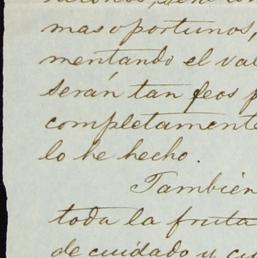 mas oportunos,
mentando el val
serán tan feos p
completamente
lo he hecho.
También
toda la fruta
de cuidado y cu